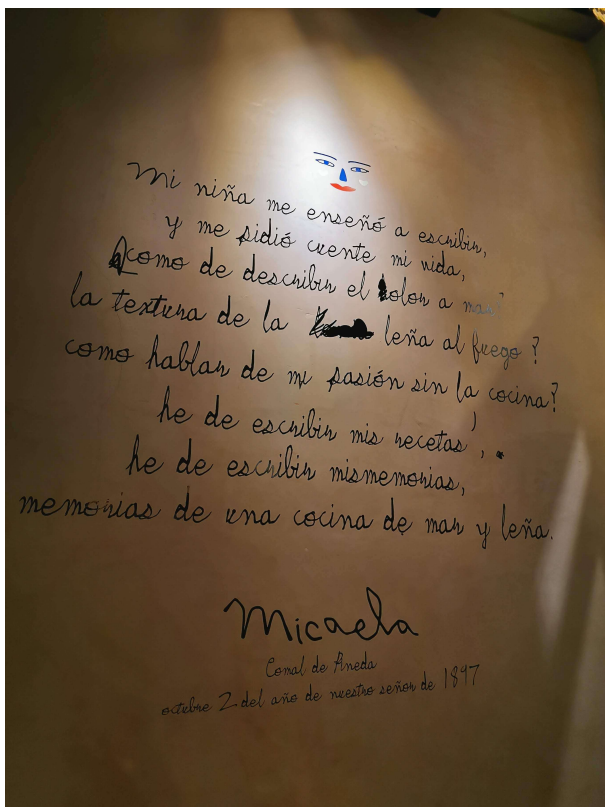 Mi niña me enseñó a escribir,
y me pidió cuente mi vida,
como de describir el olor a mar?
la textura de la leña al fuego ?
como hablar de mi pasión sin la cocina?
he de escribir mis recetas ,
he de escribir mismemorias,
memorias de una cocina de mar y leña.
Micaela
Comal de Pineda
octubre 2 del año de nuestro señor de 1897